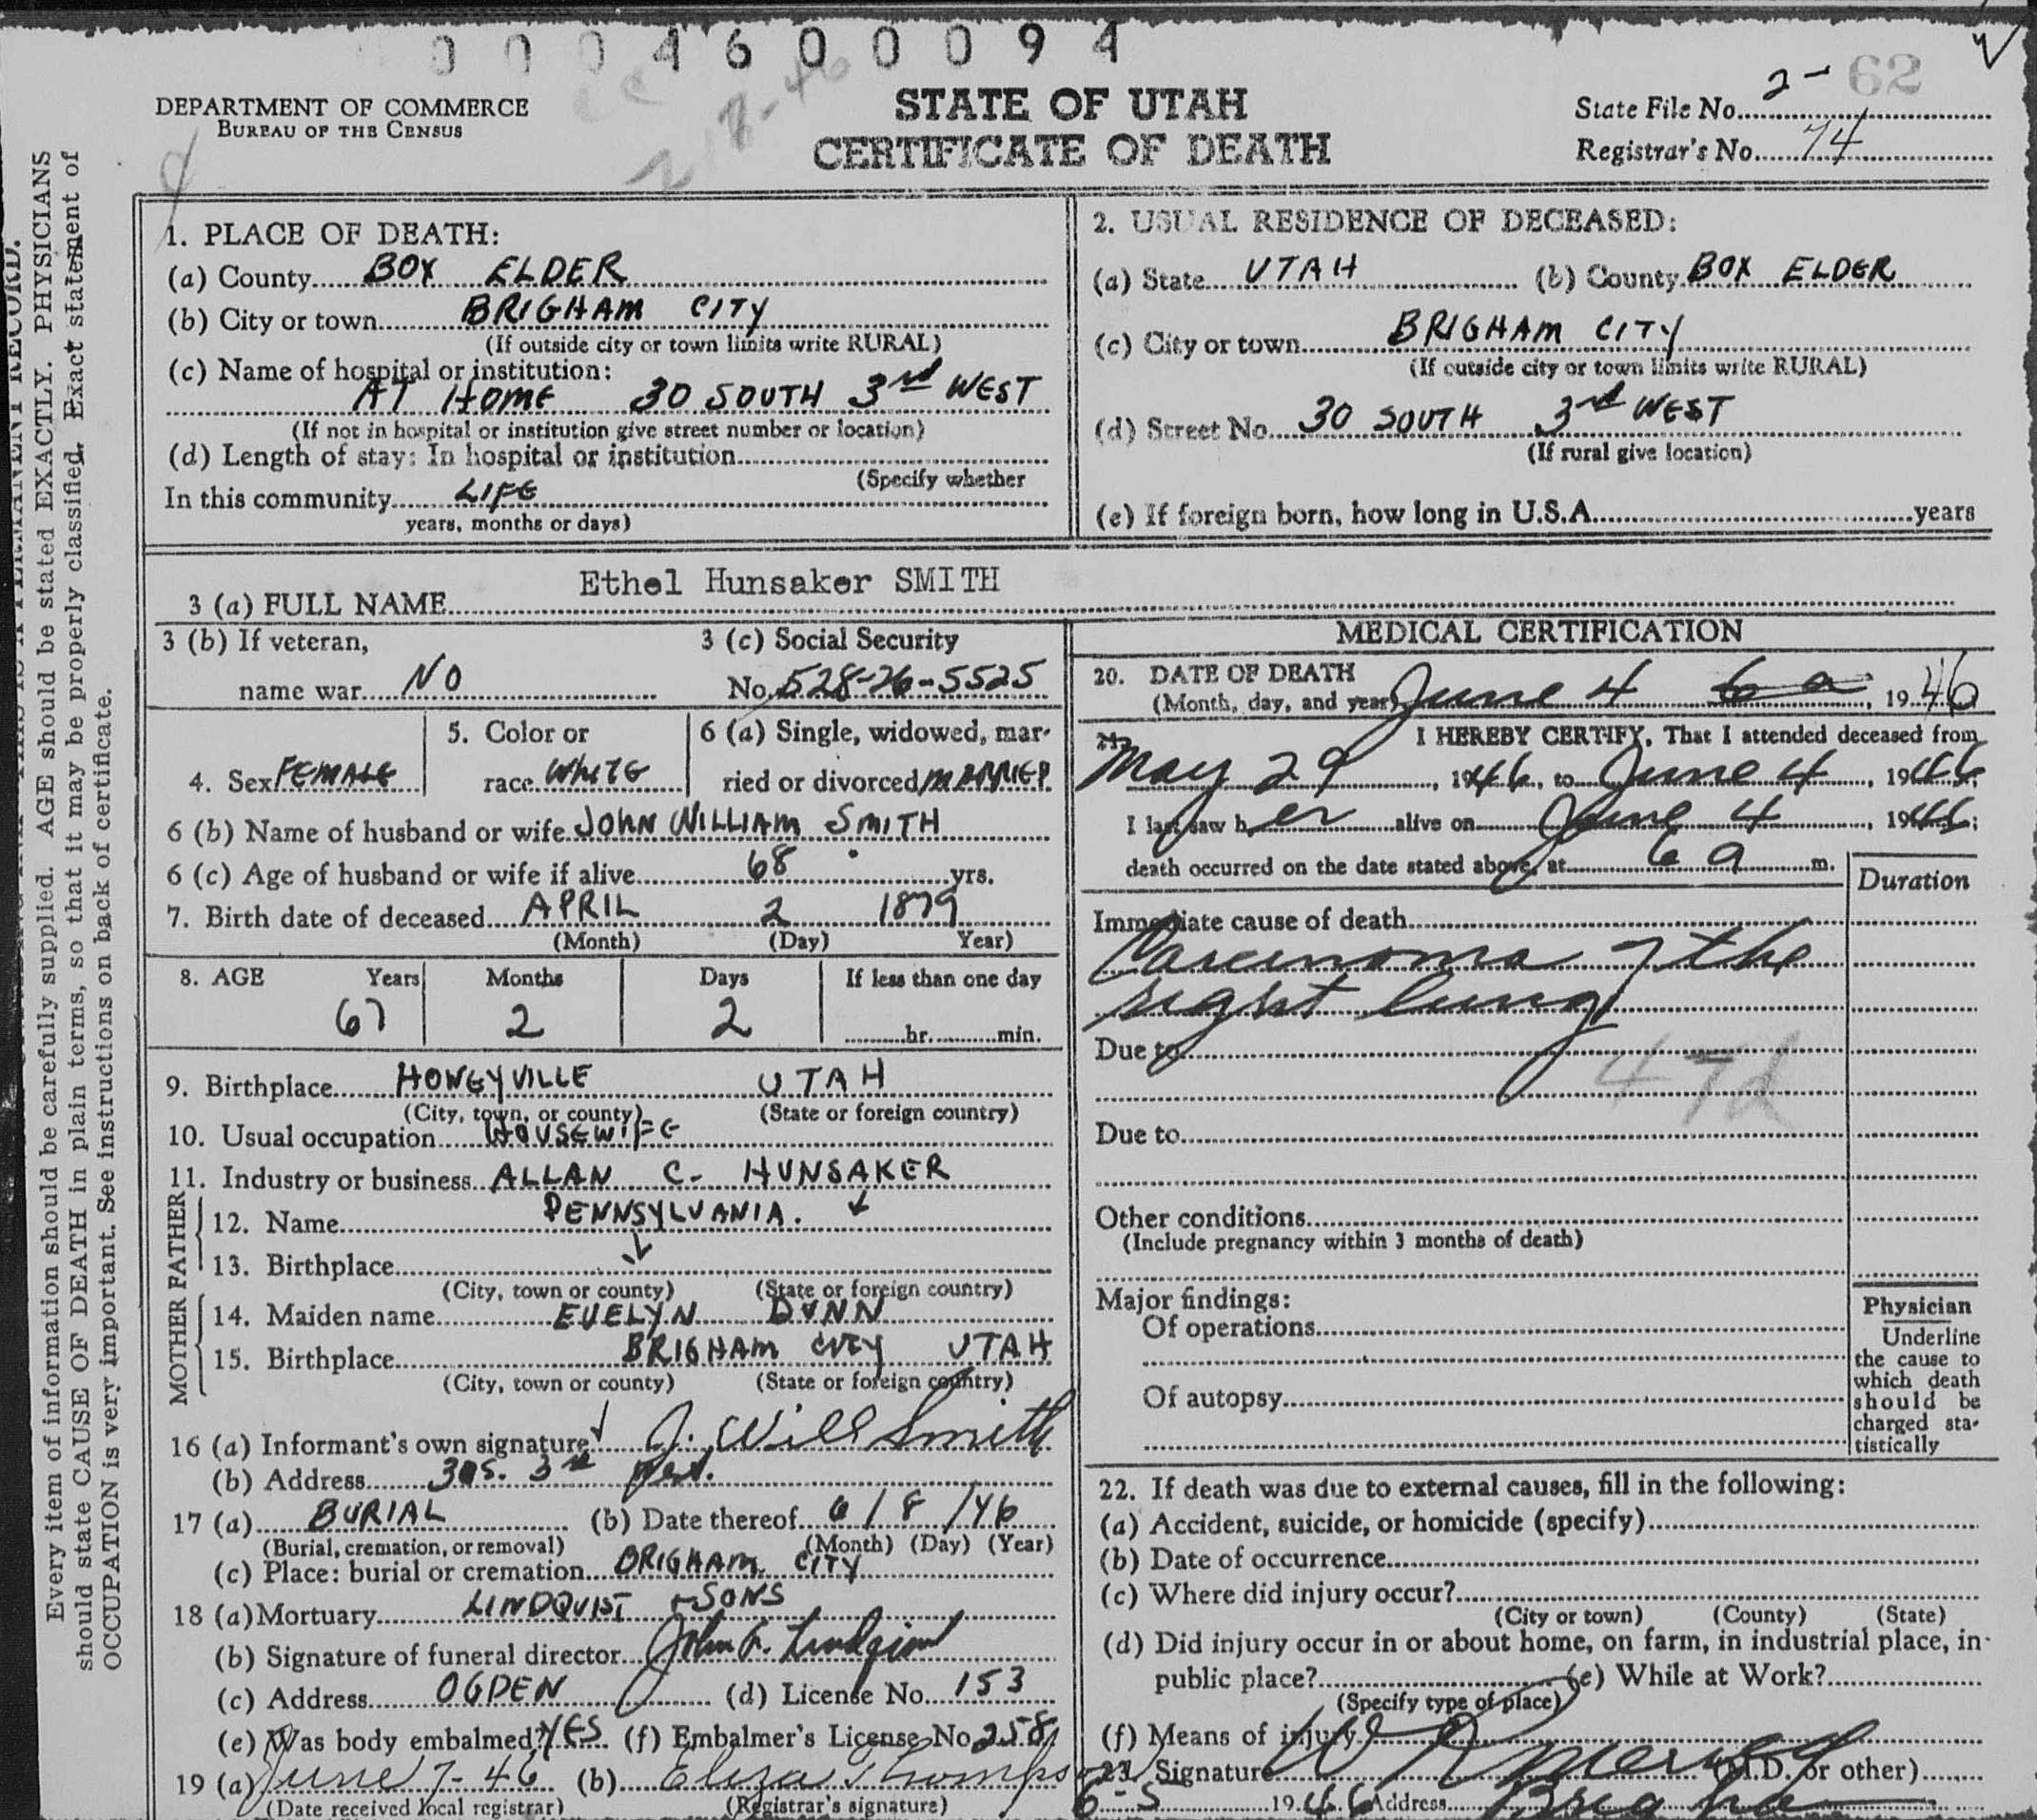 0004600094
2-18-46
DEPARTMENT OF COMMERCE
BUREAU OF THE CENSUS
STATE OF UTAH
CERTIFICATE OF DEATH
State File No. 2- 62
Registrar's No. 74
1. PLACE OF DEATH:
(a) County BOX ELDER
(b) City or town BRIGHAM CITY
(If outside city or town limits write RURAL)
(c) Name of hospital or institution:
AT HOME 30 SOUTH 3rd WEST
(If not in hospital or institution give street number or location)
(d) Length of stay: In hospital or institution
(Specify whether
In this community LIFE
years, months or days)
2. USUAL RESIDENCE OF DECEASED:
(a) State UTAH (b) County BOX ELDER
(c) City or town BRIGHAM CITY
(If outside city or town limits write RURAL)
(d) Street No. 30 SOUTH 3rd WEST
(If rural give location)
(e) If foreign born, how long in U.S.A. years
3 (a) FULL NAME Ethel Hunsaker SMITH
3 (b) If veteran,
name war NO
3 (c) Social Security
No. 528-26-5525
4. Sex FEMALE
5. Color or
race WHITE
6 (a) Single, widowed, mar-
ried or divorced MARRIED
6 (b) Name of husband or wife JOHN WILLIAM SMITH
6 (c) Age of husband or wife if alive 68 yrs.
7. Birth date of deceased APRIL 2 1879
(Month) (Day) Year)
8. AGE Years Months Days If less than one day
67 2 2 hr. min.
9. Birthplace HONEYVILLE UTAH
(City, town, or county) (State or foreign country)
10. Usual occupation HOUSEWIFE
11. Industry or business ALLAN C. HUNSAKER
FATHER
12. Name PENNSYLVANIA.
13. Birthplace
(City, town or county) (State or foreign country)
MOTHER
14. Maiden name EVELYN DUNN
15. Birthplace BRIGHAM CITY UTAH
(City, town or county) (State or foreign country)
16 (a) Informant's own signature J. Will Smith
(b) Address 30 S. 3rd West.
17 (a) BURIAL (b) Date thereof 6/8/46
(Burial, cremation, or removal) (Month) (Day) (Year)
(c) Place: burial or cremation BRIGHAM CITY
18 (a) Mortuary LINDQUIST + SONS
(b) Signature of funeral director John A. Lindquist
(c) Address OGDEN (d) License No. 153
(e) Was body embalmed? YES (f) Embalmer's License No. 258
19 (a) June 7-46 (b) Eliza Thompson
(Date received local registrar) (Registrar's signature)
MEDICAL CERTIFICATION
20. DATE OF DEATH
(Month, day, and year) June 4 6 a, 1946
21. I HEREBY CERTIFY, That I attended deceased from
May 29, 1946, to June 4, 1946;
I last saw her alive on June 4, 1946;
death occurred on the date stated above, at 6 a m.
Duration
Immediate cause of death
Carcinoma of the
right lung
Due to
47d
Due to
Other conditions
(Include pregnancy within 3 months of death)
Major findings:
Of operations
Of autopsy
Physician
Underline
the cause to
which death
should be
charged sta-
tistically
22. If death was due to external causes, fill in the following:
(a) Accident, suicide, or homicide (specify)
(b) Date of occurrence
(c) Where did injury occur?
(City or town) (County) (State)
(d) Did injury occur in or about home, on farm, in industrial place, in
public place? (e) While at Work?
(Specify type of place)
(f) Means of injury
23. Signature W R Merrell (M.D. or other)
6-5 1946 Address
Every item of information should be carefully supplied. AGE should be stated EXACTLY. PHYSICIANS
should state CAUSE OF DEATH in plain terms, so that it may be properly classified. Exact statement of
OCCUPATION is very important. See instructions on back of certificate.